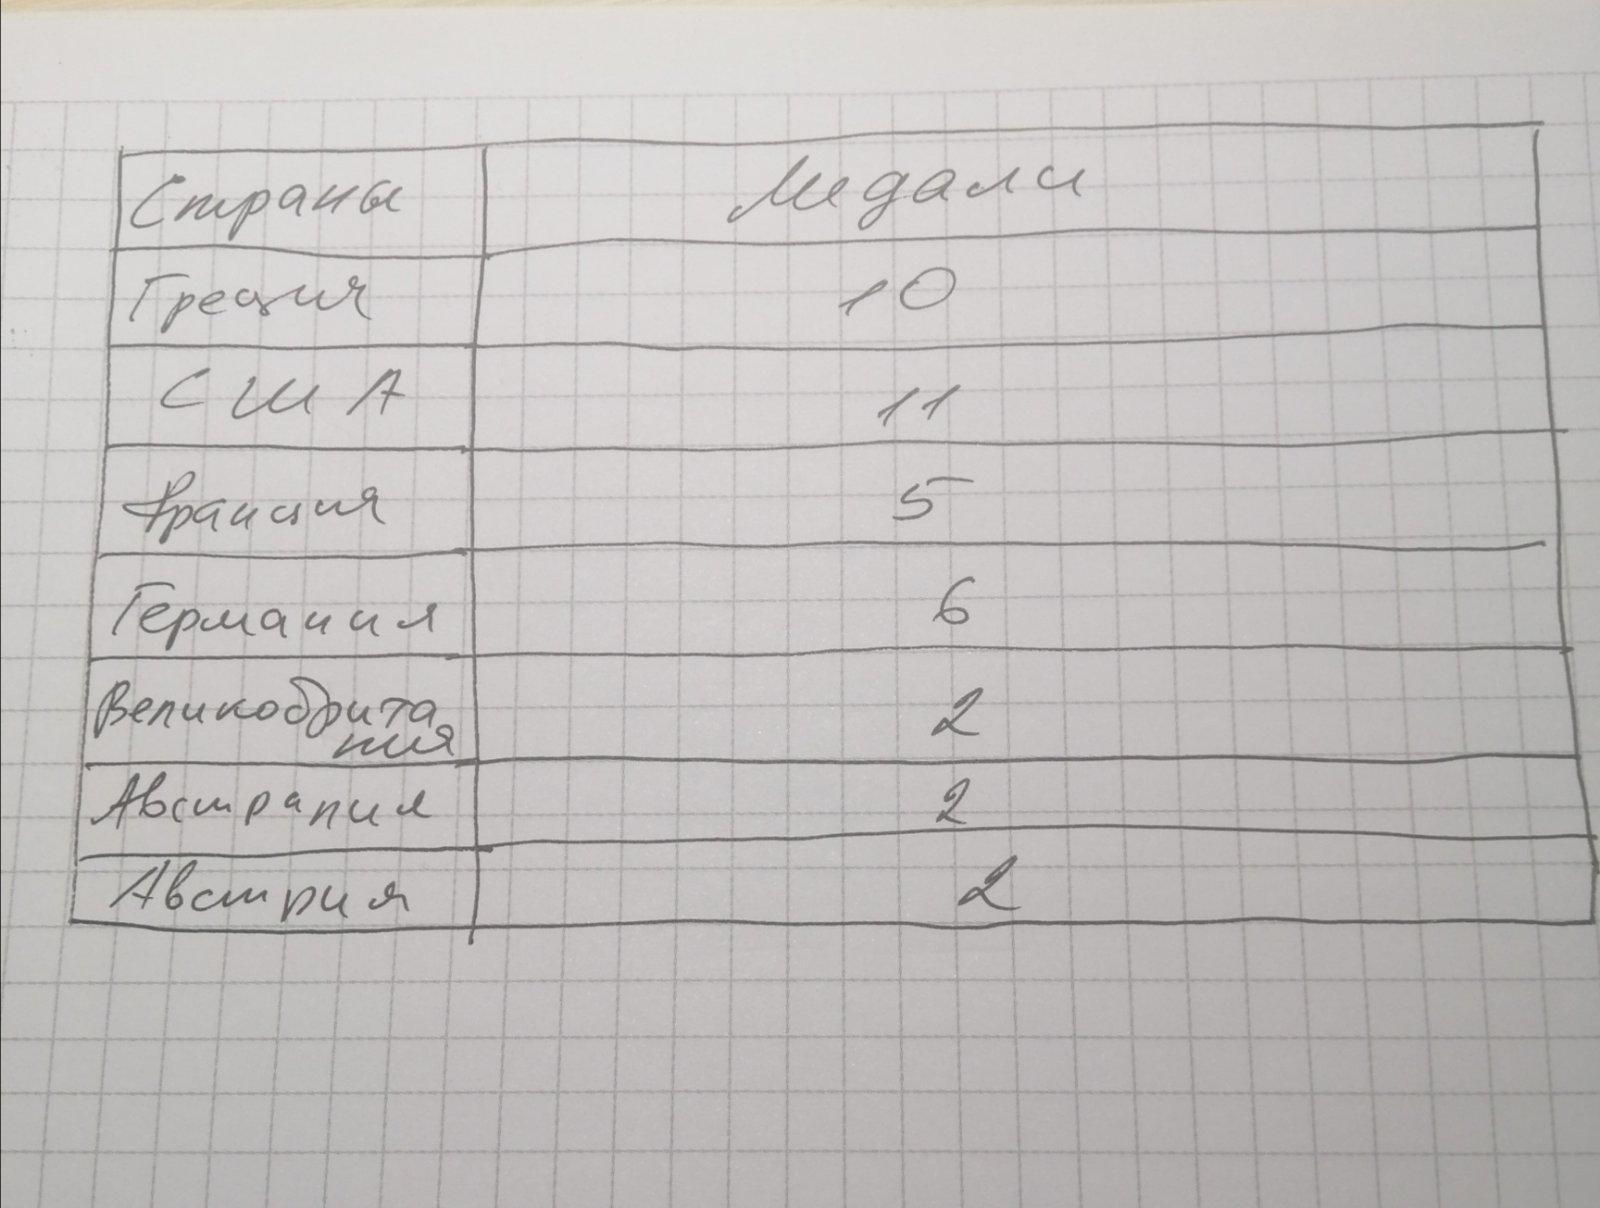 Страны Медали
Греция 10
США 11
Франция 5
Германия 6
Великобрита 2
ния
Австралия 2
Австрия 2